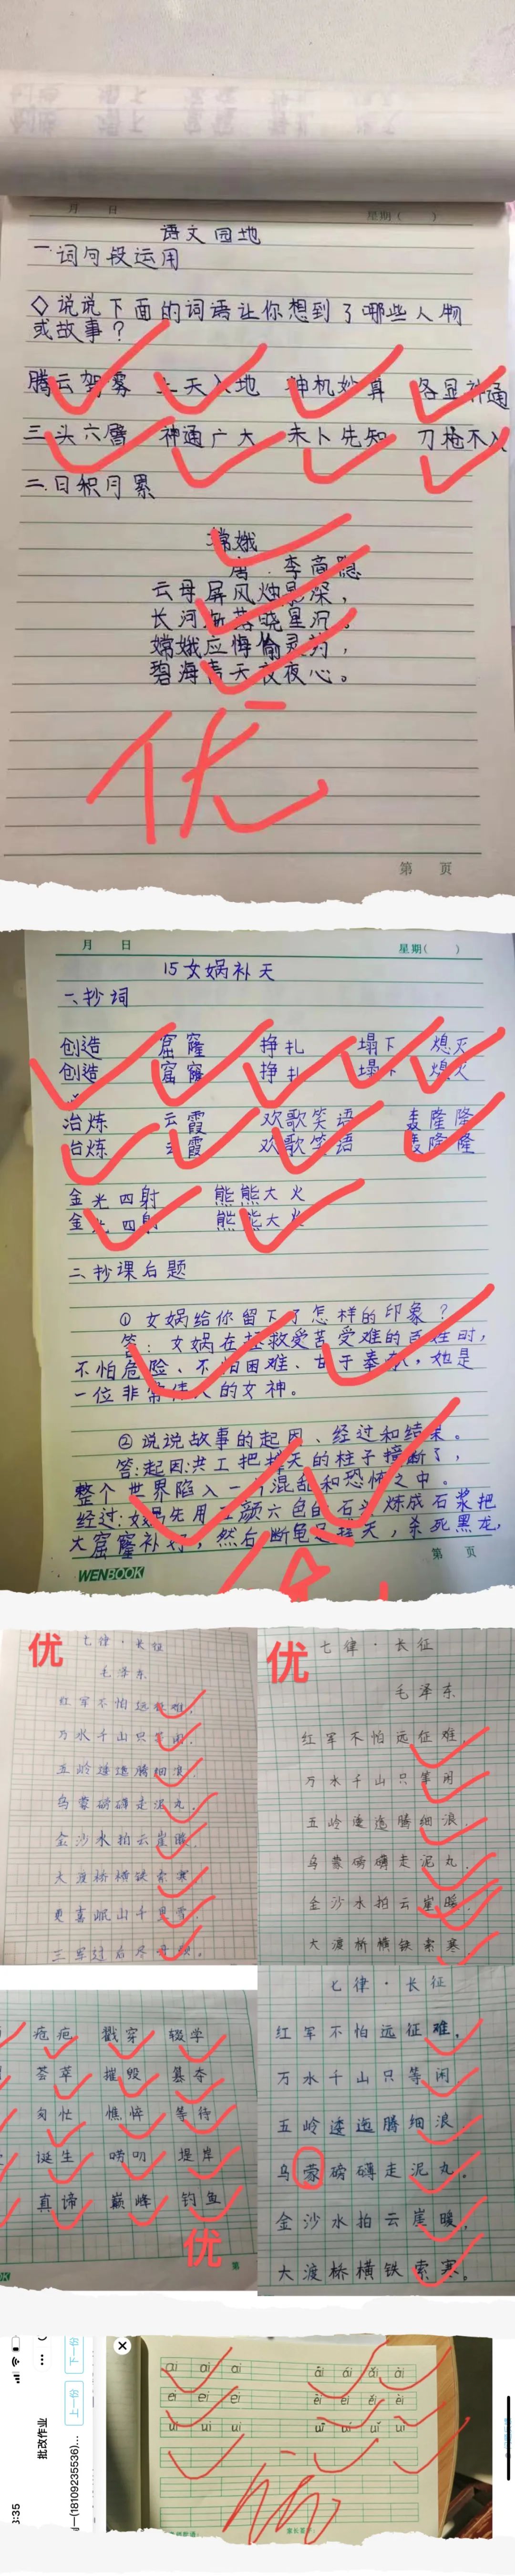 月 日 星期( )
语文园地
一词句段运用
◇说说下面的词语让你想到了哪些人物
或故事?
腾云驾雾 上天入地 神机妙算 各显神通
三头六臂 神通广大 未卜先知 刀枪不入
二.日积月累
嫦娥
唐.李商隐
云母屏风烛影深,
长河渐落晓星沉,
嫦娥应悔偷灵药,
碧海青天夜夜心。
优
第 页
月 日 星期( )
15女娲补天
一、抄词
创造 窟窿 挣扎 塌下 熄灭
创造 窟窿 挣扎 塌下 熄灭
冶炼 云霞 欢歌笑语 轰隆隆
冶炼 云霞 欢歌笑语 轰隆隆
金光四射 熊熊大火
金光四射 熊熊大火
二、抄课后题
①女娲给你留下了怎样的印象?
答:女娲在拯救爱苦受难的百姓时,
不怕危险、不怕困难、甘于奉献,她是
一位非常伟大的女神。
②说说故事的起因、经过和结果。
答:起因:洪工把撑天的柱子撞断了,
整个世界陷入一片混乱和恐怖之中。
经过:女娲先用五颜六色的石头炼成石浆把
大窟窿补好,然后断龟足撑天,杀死黑龙,
第 页
WENBOOK
优
七律·长征
毛泽东
红军不怕远征难,
万水千山只等闲,
五岭逶迤腾细浪,
乌蒙磅礴走泥丸,
金沙水拍云崖暖,
大渡桥横铁索寒,
更喜岷山千里雪,
三军过后尽开颜。
优
七律·长征
毛泽东
红军不怕远征难,
万水千山只等闲
五岭逶迤腾细浪,
乌蒙磅礴走泥丸,
金沙水拍云崖暖,
大渡桥横铁索寒,
疮疤 戳穿 辍学
荟萃 摧毁 篡夺
匆忙 憔悴 等待
诞生 唠叨 堤岸
真谛 巅峰 钓鱼
优
第
七律·长征
红军不怕远征难,
万水千山只等闲
五岭逶迤腾细浪,
乌蒙磅礴走泥丸,
金沙水拍云崖暖,
大渡桥横铁索寒。
3:35
批改作业
(18109235536)...
上一份
下一份
ai ai ai āi ái ǎi ài
ei ei ei ēi éi ěi èi
ui ui ui uī uí uǐ uì